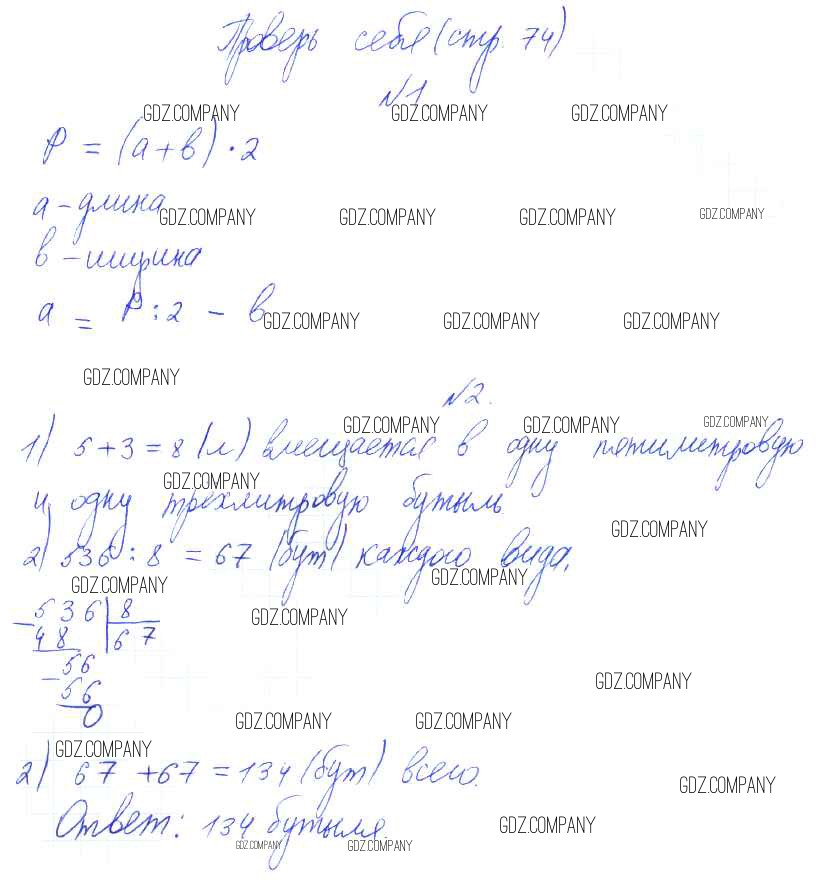 Проверь себя (стр. 74)
№1
GDZ.COMPANY GDZ.COMPANY GDZ.COMPANY
P = (a + в) · 2
а - длина
GDZ.COMPANY GDZ.COMPANY GDZ.COMPANY GDZ.COMPANY
в - ширина
a = P : 2 - в
GDZ.COMPANY GDZ.COMPANY GDZ.COMPANY
GDZ.COMPANY
№2.
GDZ.COMPANY GDZ.COMPANY GDZ.COMPANY
1) 5 + 3 = 8 (л) вмещается в одну пятилитровую
GDZ.COMPANY
и одну трёхлитровую бутыль
GDZ.COMPANY
2) 536 : 8 = 67 (бут) каждого вида.
GDZ.COMPANY GDZ.COMPANY
536 8
GDZ.COMPANY
- 48 67
- 56
GDZ.COMPANY
56
0
GDZ.COMPANY GDZ.COMPANY
GDZ.COMPANY
2) 67 + 67 = 134 (бут) всего.
GDZ.COMPANY
Ответ: 134 бутыля.
GDZ.COMPANY
GDZ.COMPANY GDZ.COMPANY